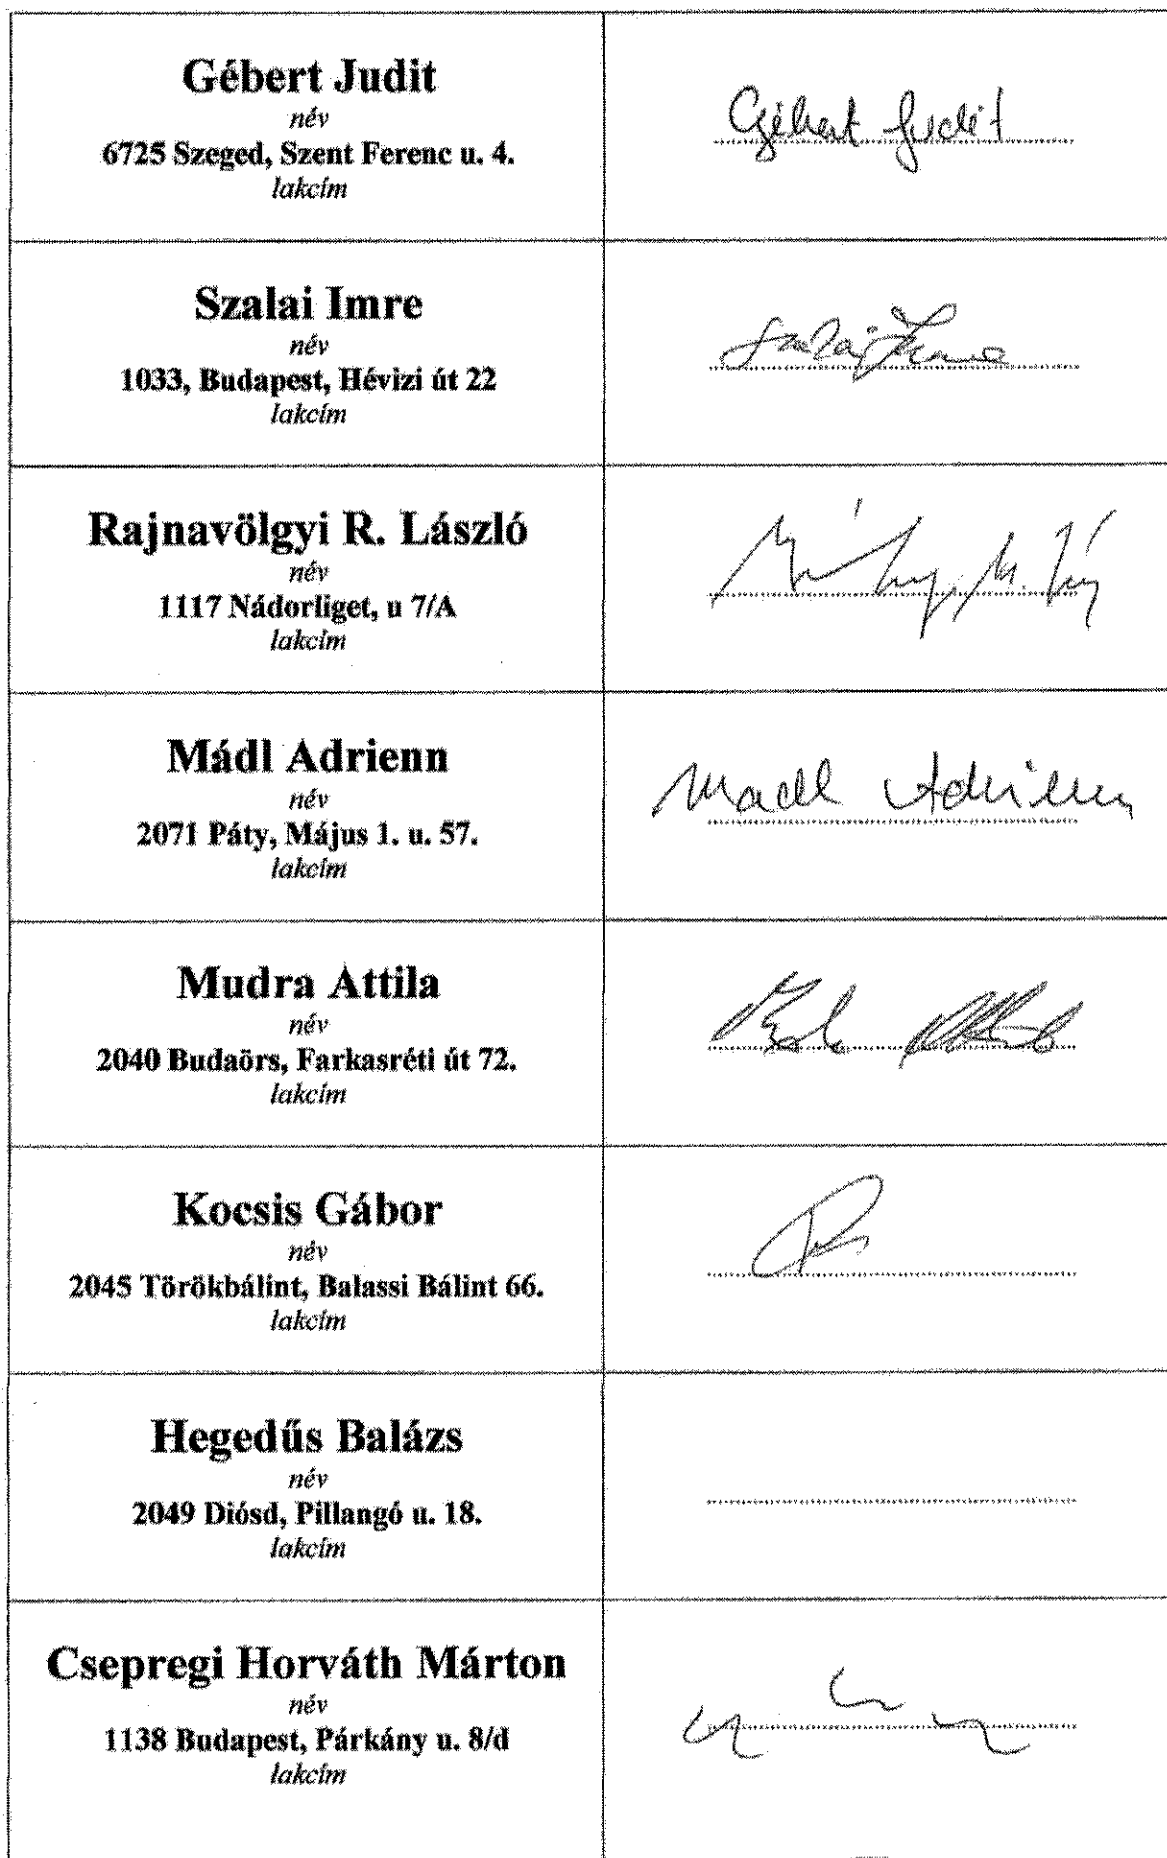 Gébert Judit
név
6725 Szeged, Szent Ferenc u. 4.
lakcím
Gébert Judit
Szalai Imre
név
1033, Budapest, Hévizi út 22
lakcím
Szalai Imre
Rajnavölgyi R. László
név
1117 Nádorliget, u 7/A
lakcím
Mádl Adrienn
név
2071 Páty, Május 1. u. 57.
lakcím
Madl Adrienn
Mudra Attila
név
2040 Budaörs, Farkasréti út 72.
lakcím
Kocsis Gábor
név
2045 Törökbálint, Balassi Bálint 66.
lakcím
Hegedűs Balázs
név
2049 Diósd, Pillangó u. 18.
lakcím
Csepregi Horváth Márton
név
1138 Budapest, Párkány u. 8/d
lakcím